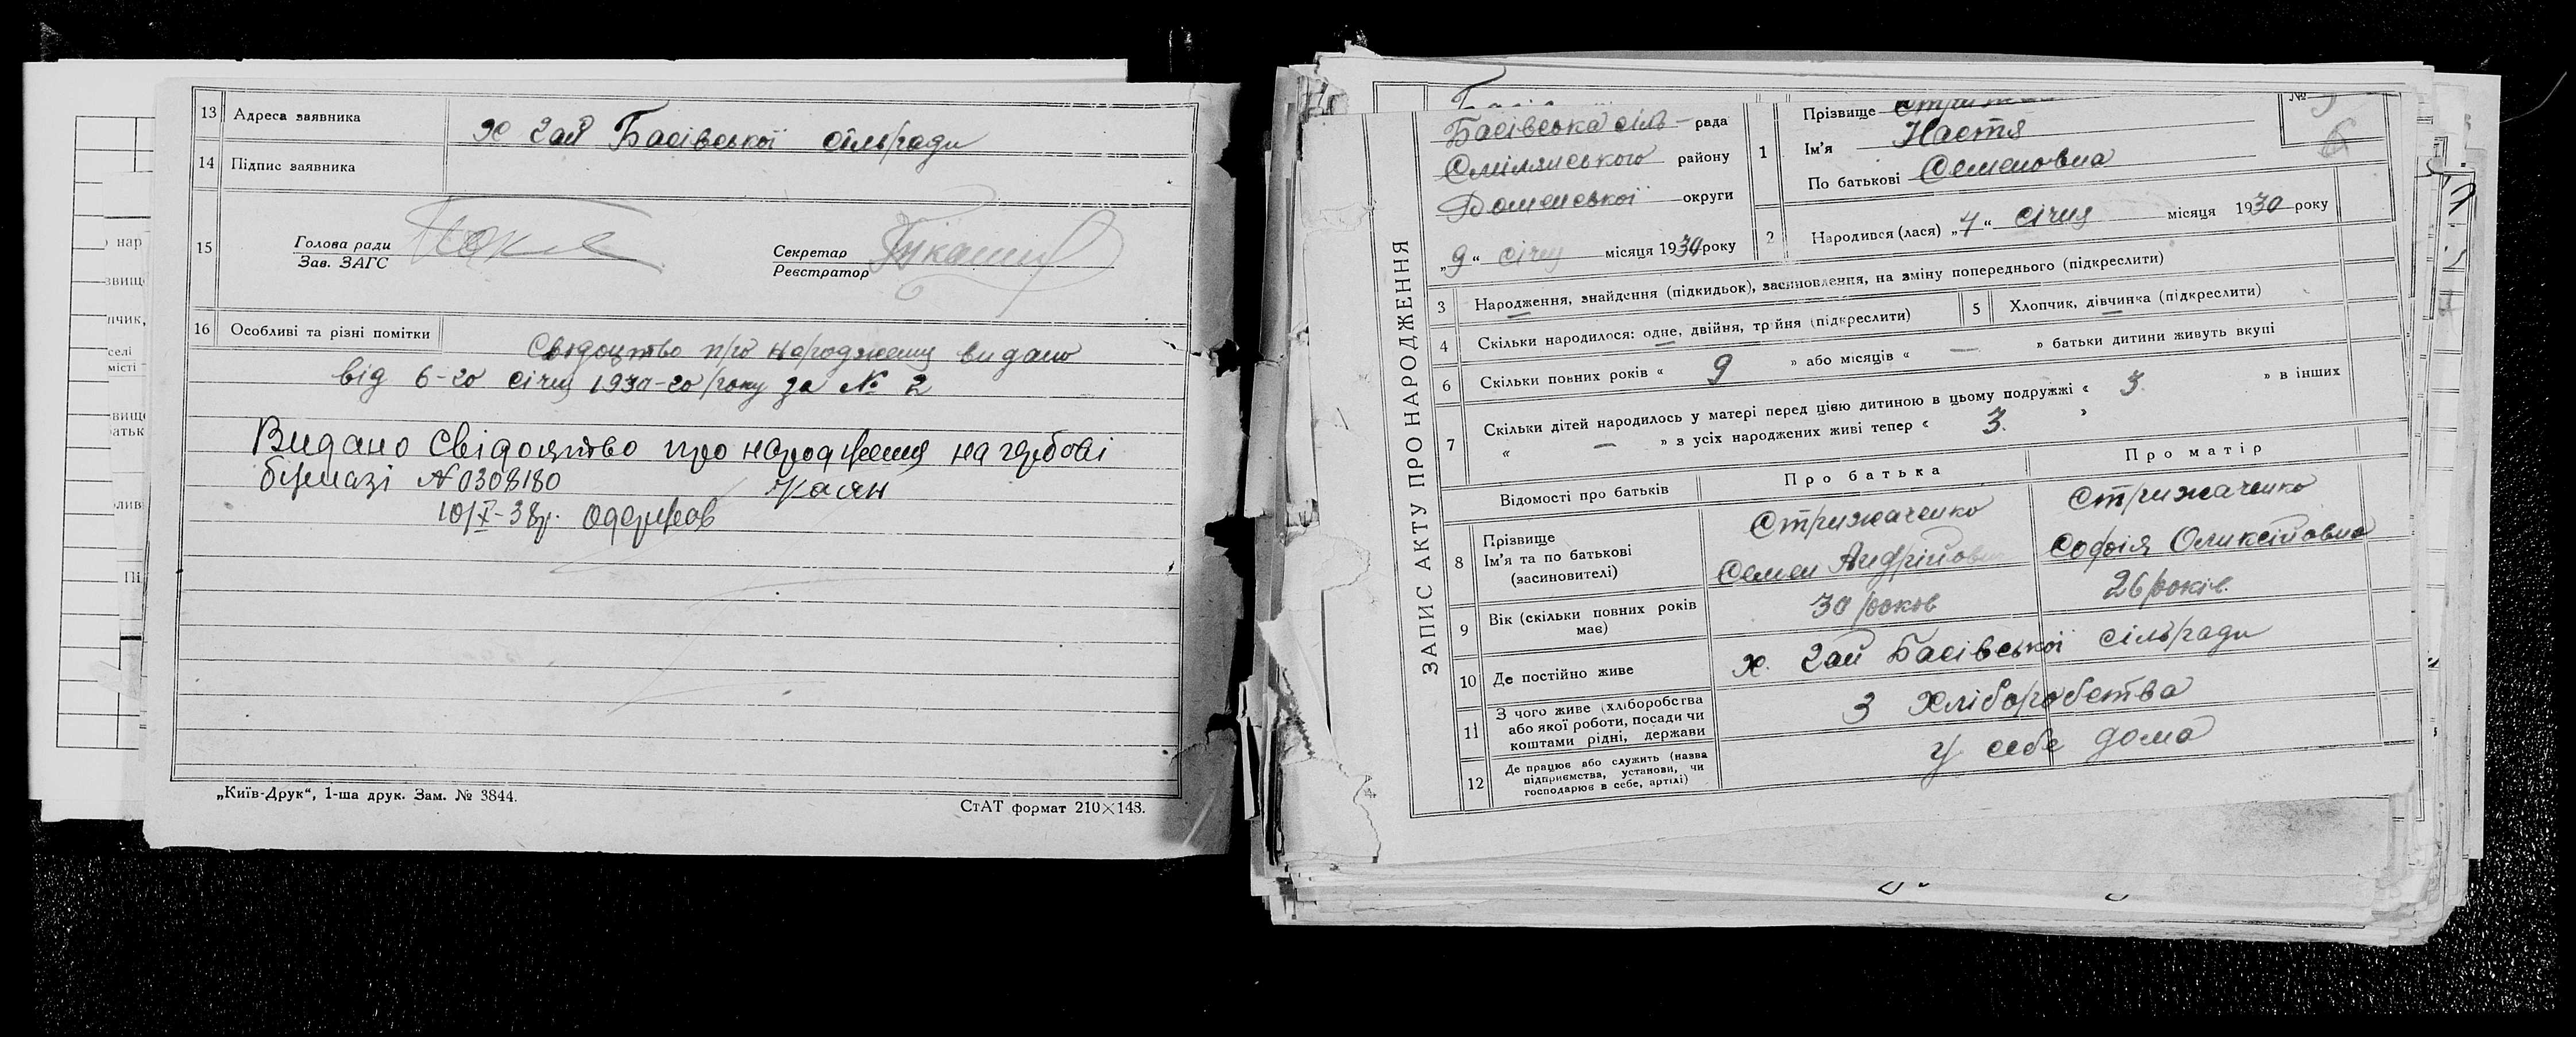 13 Адреса заявника х Гай Басівської сільради
14 Підпис заявника
15 Голова ради
Зав. ЗАГС
Секретар
Реєстратор
16 Особливі та різні помітки Свідоцтво про народження видано
від 6-го січня 1930-го року за № 2
Видано свідоцтво про народження на гербові
бумазі №0308180
10/X-38р. Одержав
„Київ-Друк“, 1-ша друк. Зам. № 3844.
СтАТ формат 210×148.
ЗАПИС АКТУ ПРО НАРОДЖЕННЯ
Басівська сіль- рада
Смілянського району
Роменської округи
„9“ січня місяця 1930 року
1 Прізвище
Ім'я Настя
По батькові Семеновна
№
2 Народився (лася) „7“ січня місяця 1930 року
3 Народження, знайдення (підкидьок), засиновлення, на зміну попереднього (підкреслити)
4 Скільки народилося: одне, двійня, тройня (підкреслити)
5 Хлопчик, дівчинка (підкреслити)
6 Скільки повних років « 9 » або місяців « — » батьки дитини живуть вкупі
7 Скільки дітей народилось у матері перед цією дитиною в цьому подружжі « 3. » в інших
« — » з усіх народжених живі тепер « 3. »
Відомості про батьків Про батька Про матір
8 Прізвище Стрижаченко Стрижаченко
Ім'я та по батькові Семен Андрійов Софія Оликсійовна
(засиновителі)
9 Вік (скільки повних років має) 30 років 26 років.
10 Де постійно живе х. Гай Басівської сільради
11 З чого живе (хліборобства
або якої роботи, посади чи
коштами рідні, держави
З хліборобства
12 Де працює або служить (назва
підприємства, установи, чи
господарює в себе, артілі)
У себе дома